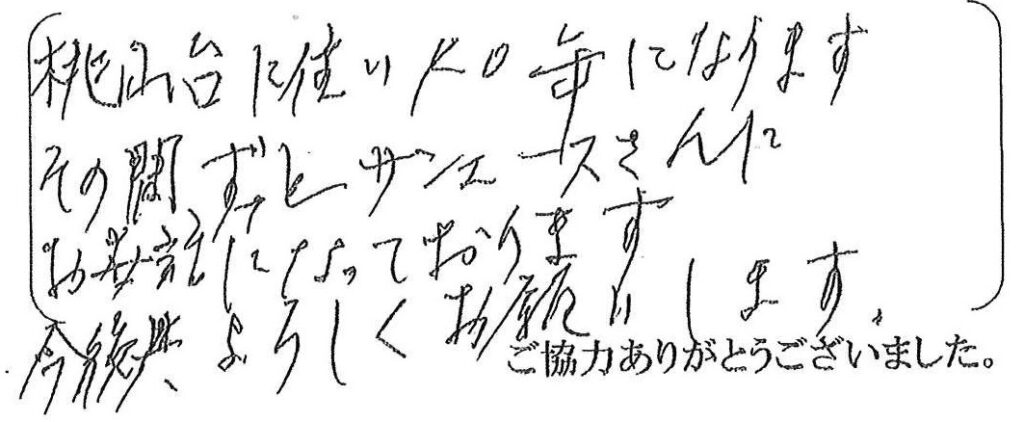 桃山台に住い20年になります
その間ずっとサンエースさんに
お世話になっております
今後共、よろしくお願いします。
ご協力ありがとうございました。